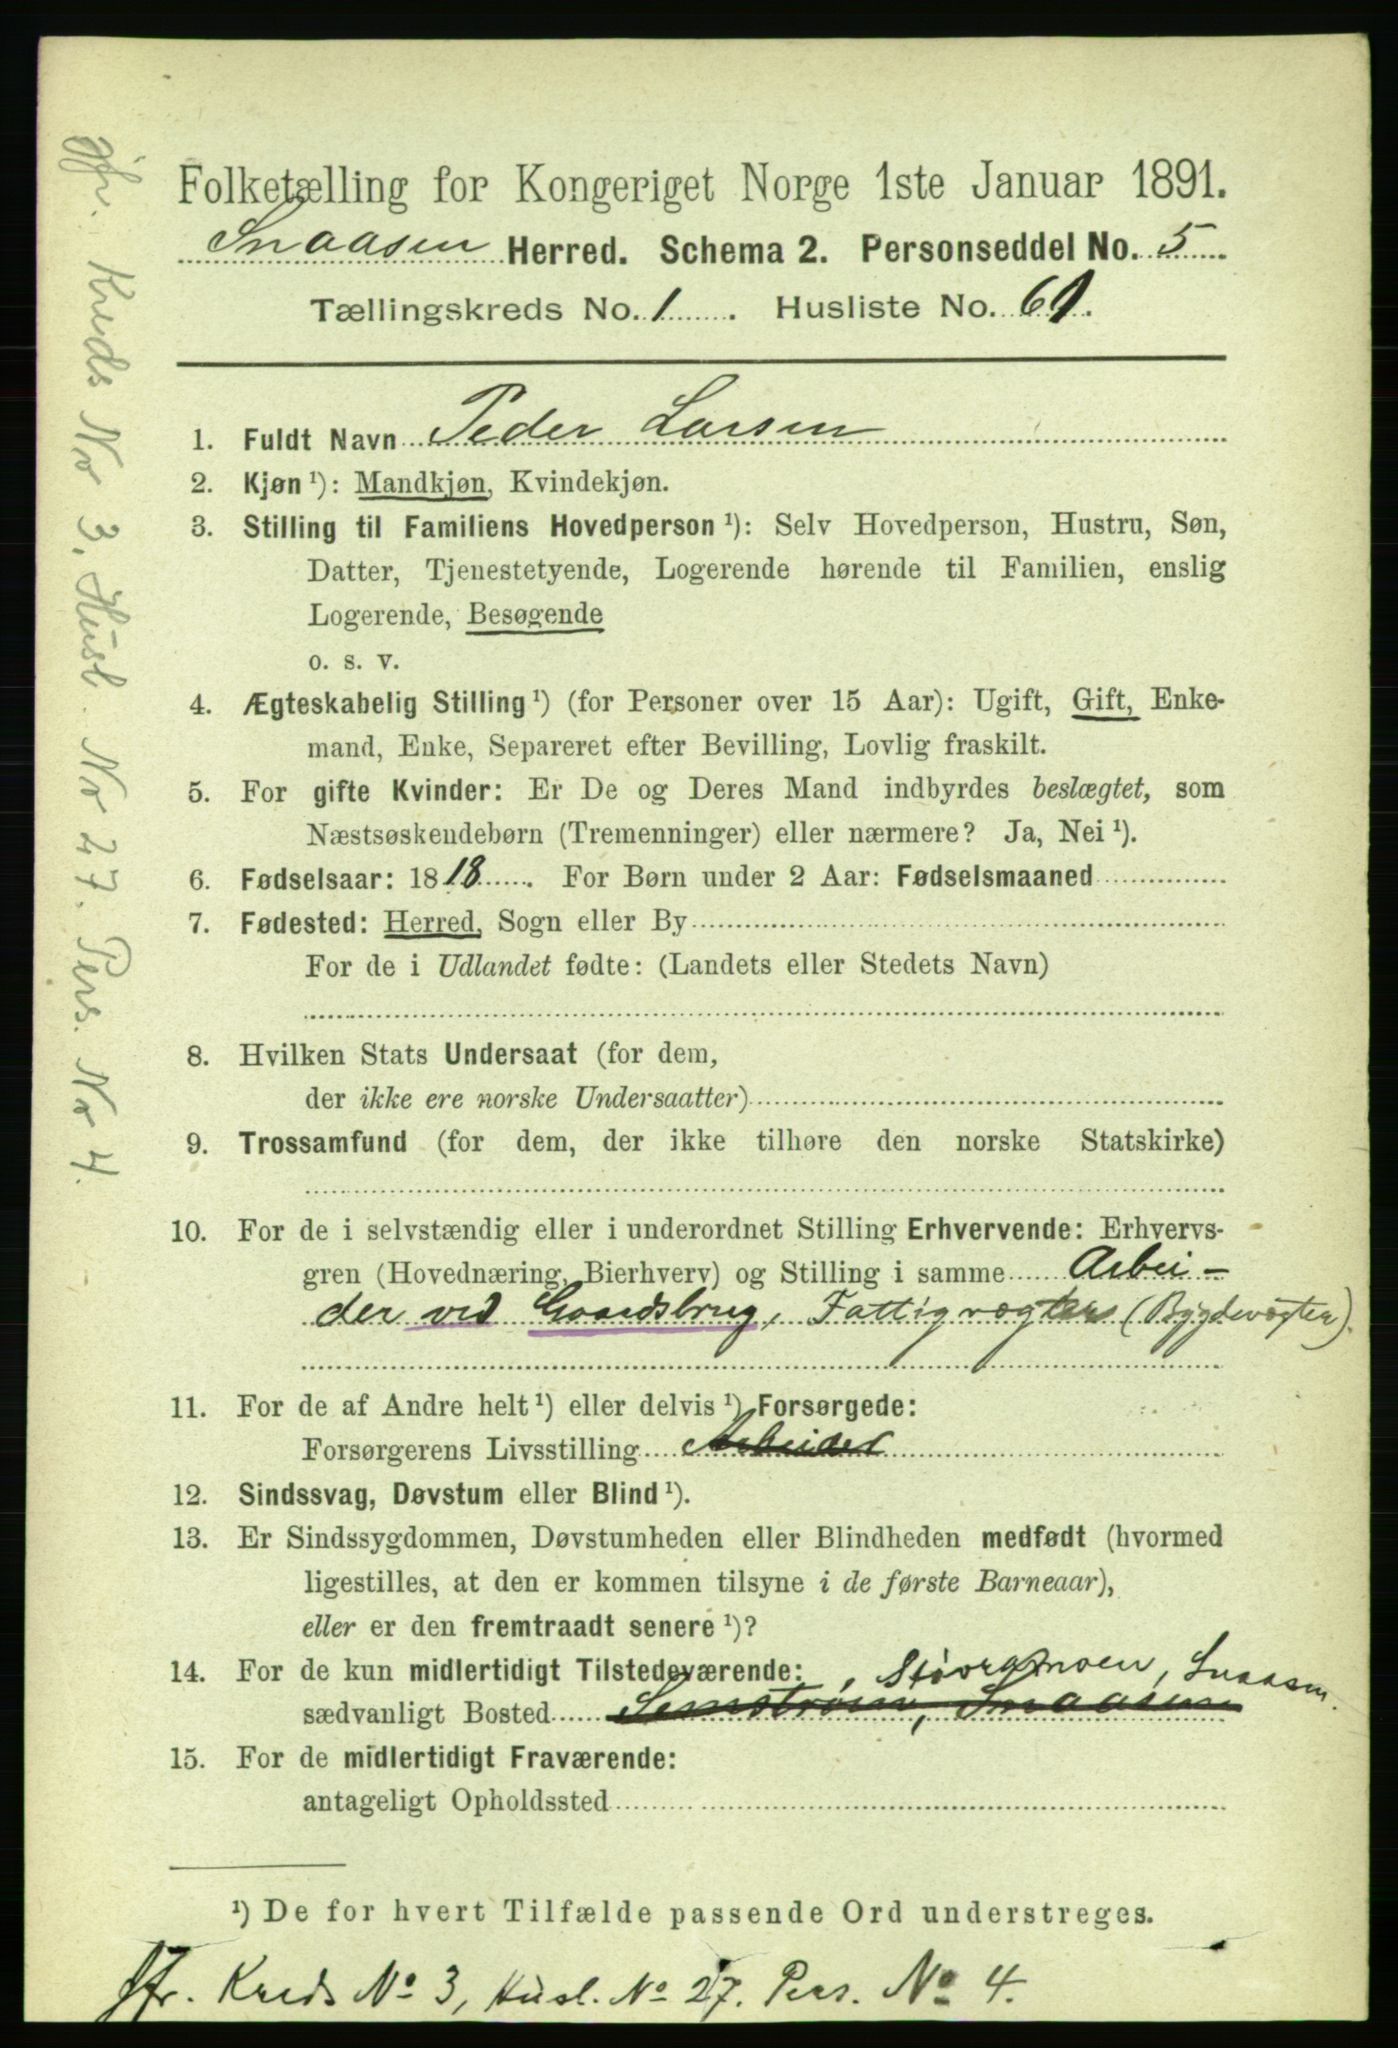 Folketælling for Kongeriget Norge 1ste Januar 1891.
Snaasen Herred. Schema 2. Personseddel No. 5
Tællingskreds No. 1. Husliste No. 61.
1. Fuldt Navn Peder Larsen
2. Kjøn ¹): Mandkjøn, Kvindekjøn.
3. Stilling til Familiens Hovedperson ¹): Selv Hovedperson, Hustru, Søn,
Datter, Tjenestetyende, Logerende hørende til Familien, enslig
Logerende, Besøgende
o. s. v.
4. Ægteskabelig Stilling ¹) (for Personer over 15 Aar): Ugift, Gift, Enke-
mand, Enke, Separeret efter Bevilling, Lovlig fraskilt.
5. For gifte Kvinder: Er De og Deres Mand indbyrdes beslægtet, som
Næstsøskendebørn (Tremenninger) eller nærmere? Ja, Nei ¹).
6. Fødselsaar: 1818. For Børn under 2 Aar: Fødselsmaaned
7. Fødested: Herred, Sogn eller By
For de i Udlandet fødte: (Landets eller Stedets Navn)
8. Hvilken Stats Undersaat (for dem,
der ikke ere norske Undersaatter)
9. Trossamfund (for dem, der ikke tilhøre den norske Statskirke)
10. For de i selvstændig eller i underordnet Stilling Erhvervende: Erhvervs-
gren (Hovednæring, Bierhverv) og Stilling i samme Arbei-
der ved Gaardsbrug, Fattigvogter (Bygdevogter).
11. For de af Andre helt ¹) eller delvis ¹) Forsørgede:
Forsørgerens Livsstilling Arbeider
12. Sindssvag, Døvstum eller Blind ¹).
13. Er Sindssygdommen, Døvstumheden eller Blindheden medfødt (hvormed
ligestilles, at den er kommen tilsyne i de første Barneaar),
eller er den fremtraadt senere ¹)?
14. For de kun midlertidigt Tilstedeværende: , Snaasen.
sædvanligt Bosted Snaasen
15. For de midlertidigt Fraværende:
antageligt Opholdssted
¹) De for hvert Tilfælde passende Ord understreges.
Jfr. Kreds No 3, Husl. No 27. Pers. No 4.
jfr. Kreds No 3, Husl. No 27. Pers. No 4.